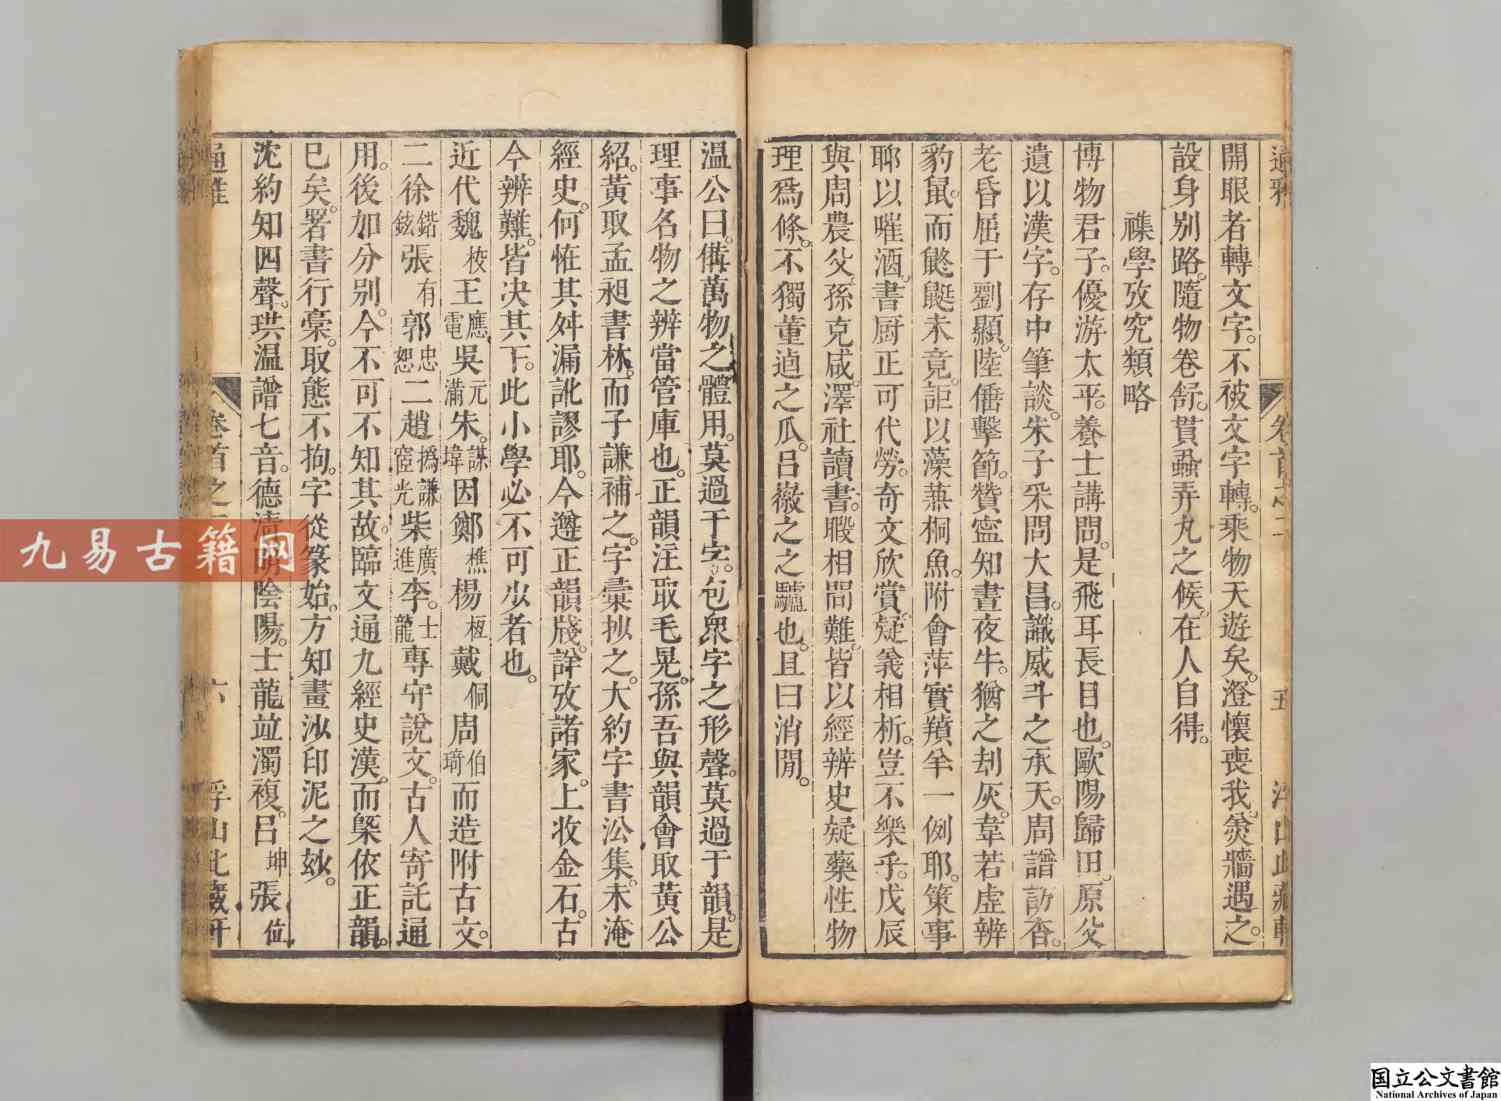 通雅 卷首之二 五 浮山此藏軒
開眼者轉文字。不被文字轉。乘物天遊矣。澄懷喪我。羮牆遇之。
設身別路。隨物卷舒。貫蝨弄丸之候。在人自得。
襍學攷究類略
博物君子。優游太平。養士講問。是飛耳長目也。歐陽歸田。原父
遺以漢字。存中筆談。朱子采問大昌。識威斗之承天。周譜訪杳。
老昏屈于劉顯。陸倕擊節。贊寧知晝夜牛。猶之刦灰。韋若虛辨
豹鼠。而𪕭䶄未竟。詎以藻蕪桐魚。附會萍實羵羊一例耶。策事
耶以嚾酒。書厨正可代勞。奇文欣賞。疑義相析。豈不樂乎。戊辰
與周農父孫克咸。澤社讀書。暇相問難。皆以經辨史疑藥性物
理爲條。不獨董逌之瓜。呂㣲之之驢也。且曰消閒。
温公曰。備萬物之體用。莫過于字。包衆字之形聲。莫過于韻。是
理事名物之辨當管庫也。正韻注取毛晃。孫吾與韻會取黃公
紹。黃取孟昶書林。而子謙補之。字彚抄之。大約字書㳂集。未淹
經史。何恠其舛漏訛謬耶。今遵正韻牋。詳攷諸家。上收金石。古
今辨難。皆决其下。此小學必不可少者也。
近代魏校王應電吳元滿朱。謀㙔因鄭樵楊桓戴侗周伯琦而造附古文。
二徐鍇鉉張有郭忠恕二趙撝謙宧光柴廣進李。士龍專守說文。古人寄託通
用。後加分別。今不可不知其故。臨文通九經史漢。而槩依正韻。
已矣。署書行槀。取態不拘。字從篆始。方知畫沙印泥之妙。
沈約知四聲。珙温譜七音。德清明陰陽。士龍竝濁複。呂坤張位
通雅 卷首之二 六 浮山此藏軒
九易古籍网
国立公文書館
National Archives of Japan